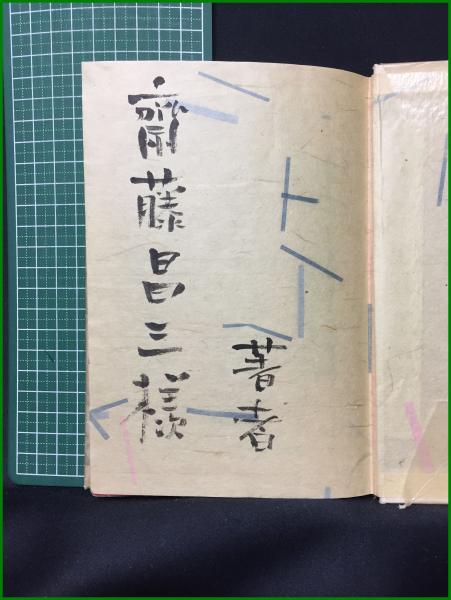 齋藤昌三様
著者